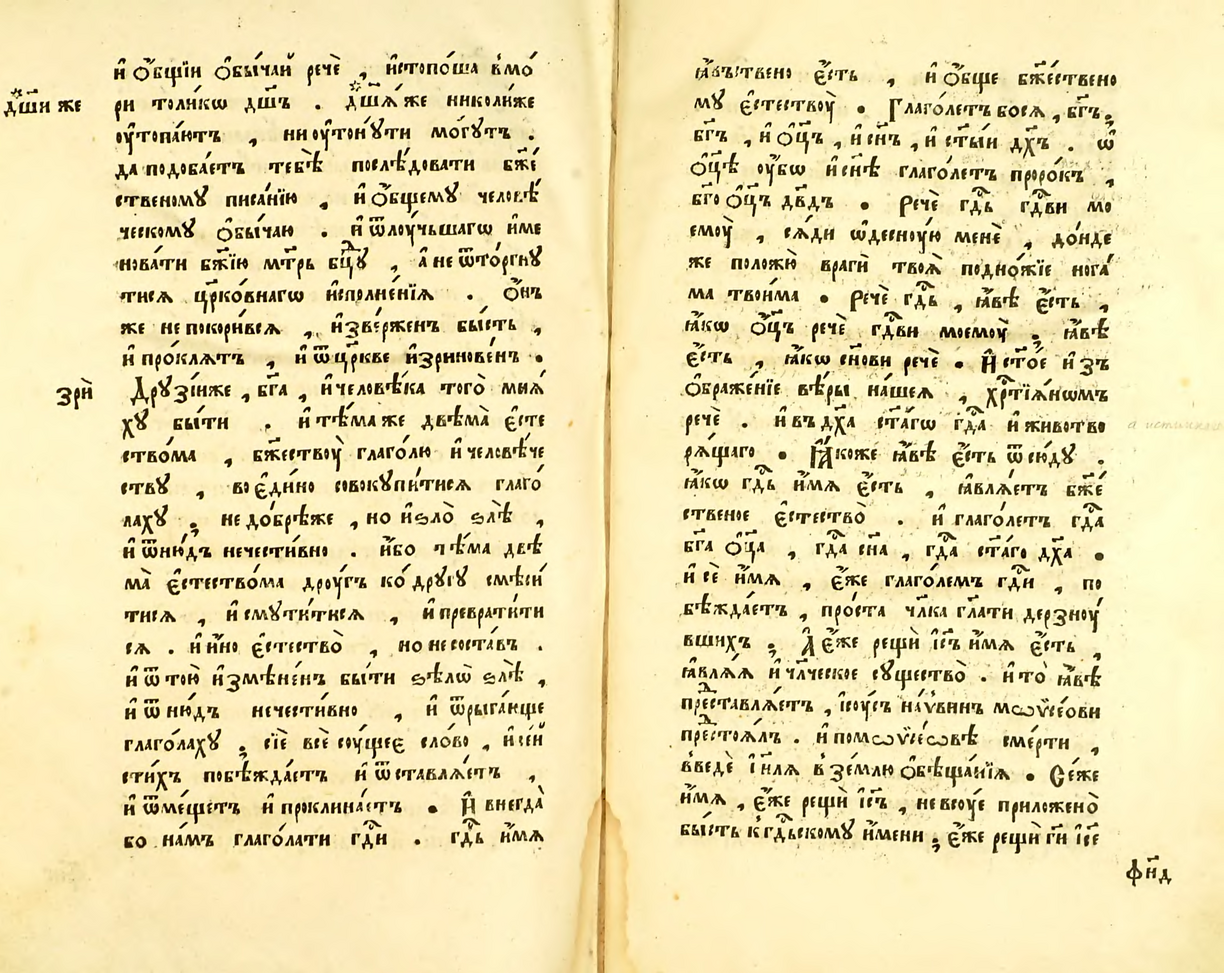 и҆ ѻ҆́бщїи ѻ҆бы́чай речѐ , и҆стопо́ша в̾мо́
дш҃и же
ри толи́кѡ дш҃ъ . дш҃ѧ́ же николи́же
ᲂу҆топа́ютъ , ни ᲂу҆тон́ꙋти мо́гꙋтъ .
да подоба́етъ тебѣ̀ послѣ́довати бж҃е́
ственомꙋ писа́нїю , и҆ ѻ҆́бщемꙋ человѣ́
ческомꙋ ѻ҆бы́чаю . и҆ ѿлꙋ́чьшагѡ и҆ме
нова́ти бж҃їю мт҃рь бц҃ꙋ , а҆ не ѿто́ргнꙋ
тисѧ цр҃ко́внагѡ и҆сполне́нїѧ . Ѻ҆́нъ
же не покори́всѧ , и҆зве́рженъ бы́сть ,
и҆ про́клѧтъ , и҆ ѿ цр҃кве и҆зринове́нъ .
зрѝ
Дрꙋзі́и же , бг҃а , и҆ человѣ́ка того̀ мнѧ́
хꙋ бы́ти . и҆ тѣ́ма же двѣма̀ є҆сте
ство́ма , бж҃ествоу̀ глаго́лю и҆ человѣ́че
ствꙋ , во є҆ди́но совокꙋпи́тисѧ глаго́
лахꙋ . не до́брѣ же , но и҆ ѕѣло̀ ѕлѣ̀ ,
и҆ ѿню́дъ нечести́вно . и҆́бо тѣ́ма двѣ
ма̀ є҆стество́ма дрꙋ́гъ ко дрꙋ́гꙋ смѣси́
тисѧ , и҆ смꙋти́тисѧ , и҆ преврати́ти
сѧ . и҆ и҆́но є҆стество̀ , но не соста́въ .
и҆ ѿ то́ю и҆змѣне́нъ бы́ти ѕѣлѡ̀ ѕлѣ̀ ,
и҆ ѿню́дъ нечести́вно , и҆ ѿрыга́юще
глаго́лахꙋ . сїѐ всѐ сꙋ́щее сло́во , и҆ се́й
сти́хъ побѣжда́етъ и҆ ѿставлѧ́етъ ,
и҆ ѿме́щетъ и҆ проклина́етъ . И҆ внегда̀
бо на́мъ глаго́лати гд҇и . гд҇ь и҆́мѧ
ꙗ҆́вьствено є҆́сть , и҆ ѻ҆́бще бж҃ествено
мꙋ є҆стествꙋ̀ . Глаго́летъ бо сѧ , бг҃ъ ,
бг҃ъ , и҆ ѻ҆ц҃ъ , и҆ сн҃ъ , и҆ ст҃ы́и дх҃ъ . ѡ҆
ѻ҆ц҃ѣ ᲂу҆́бѡ и҆ сн҃ѣ глаго́летъ проро́къ ,
бг҃оѻ҆ц҃ъ дв҃дъ . Речѐ гд҇ь гд҇ви мо
емꙋ̀ , сѧ́ди ѡ҆деснꙋ́ю менѐ , до́нде
же положꙋ̀ врагѝ твоѧ̀ подно́жїе нога́
ма твои́ма . Речѐ гд҇ь , ꙗ҆́вѣ є҆́сть ,
ꙗ҆́кѡ ѻ҆ц҃ъ речѐ гд҇ви моемꙋ̀ . ꙗ҆́вѣ
є҆́сть , ꙗ҆́кѡ сн҃ови речѐ . И҆ ст҃о́е и҆зъ
ѻ҆браже́нїе вѣ́ры на́шеѧ , хр҇тїѧ́нѡмъ
речѐ . и҆ въ дх҃а ст҃а́гѡ гд҇а и҆ животво
рѧ́щаго . Ꙗ҆́коже ꙗ҆́вѣ є҆́сть ѿсю́дꙋ .
ꙗ҆́кѡ гд҇ь и҆́мѧ є҆́сть , ꙗ҆влѧ́етъ бж҃е́
ственое є҆стество̀ . и҆ глаго́летъ гд҇а
бг҃а ѻ҆ц҃а , гд҇а сн҃а , гд҇а ст҃а́го дх҃а .
и҆ сѐ и҆́мѧ , є҆́же глаго́лемъ гд҇и , по
бѣжда́етъ , про́ста чл҃ка гл҃ати дерзнꙋ́
вшихъ . А҆ є҆́же рещѝ і҆с҃ъ и҆́мѧ є҆́сть ,
ꙗ҆влѧ́ѧ и҆ чл҃ческое сꙋщество̀ . и҆ то ꙗ҆́вѣ
преставлѧ́етъ , і҆сꙋ́съ наѵ́винъ мѡѷсе́ови
престоѧ́лъ . и҆ по мѡѷсе́ѡвѣ сме́рти ,
введѐ і҆и҃лѧ в̾ зе́млю ѻ҆бѣща́нїѧ . Се́же
и҆́мѧ , є҆́же рещѝ і҆с҃ъ , не всꙋ́е приложено̀
бы́сть к̾ гд҇ьскомꙋ и҆́мени , є҆́же рещѝ гн҃и і҆с҃е
фн҃д